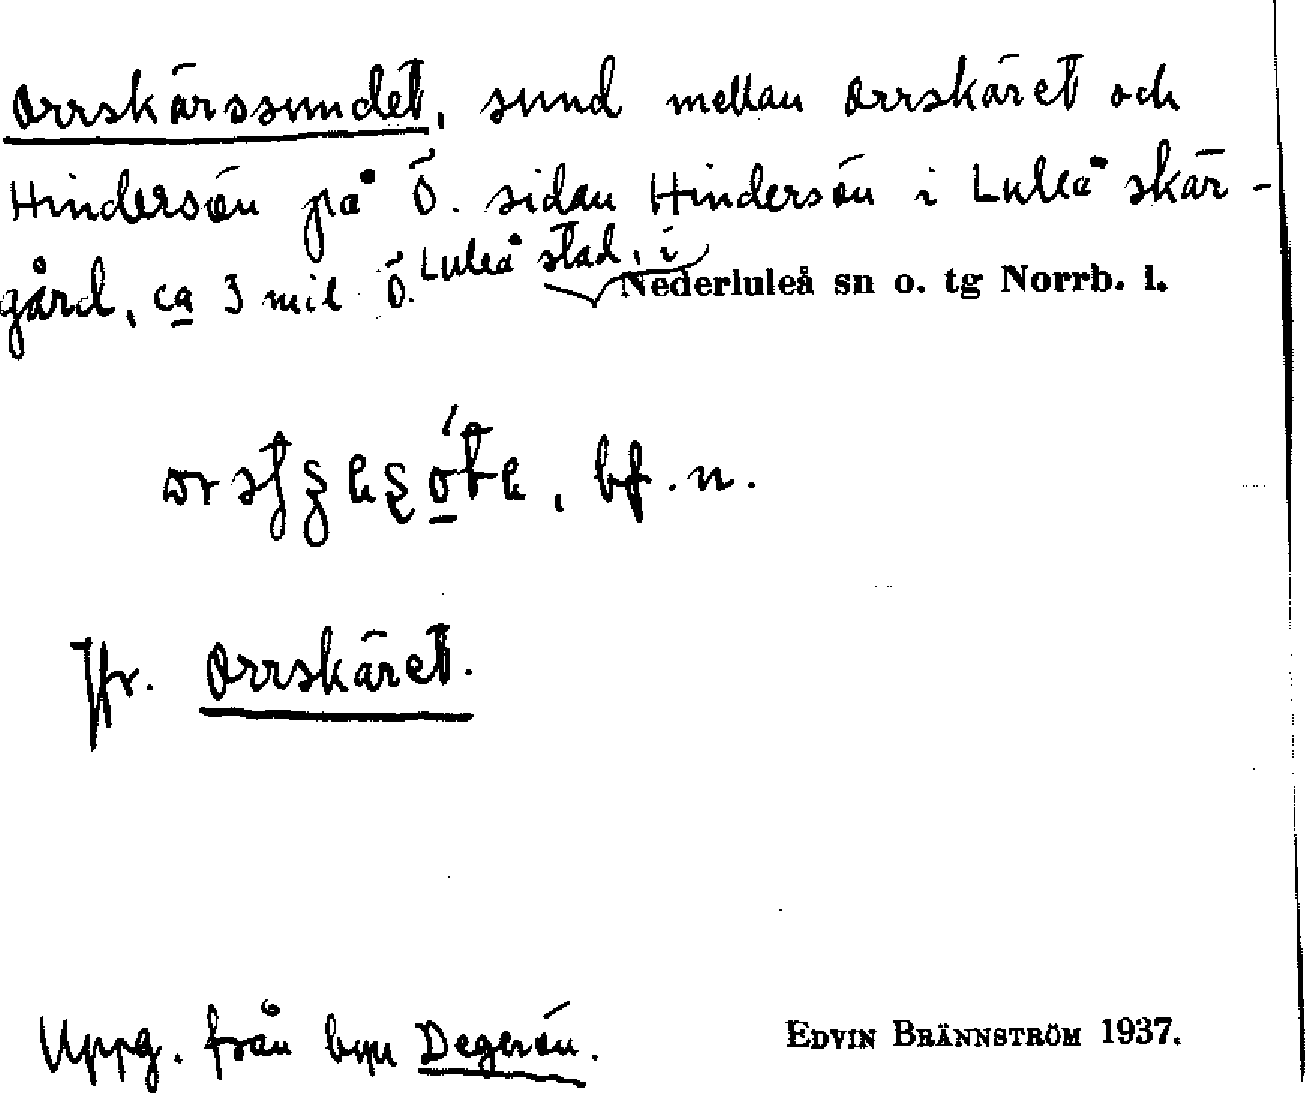 Orrskärssundet, sund mellan Orrskäret och
Hindersön på Ö. sidan Hindersön i Luleå skär-
gård, ca 3 mil Ö. Luleå stad, i Nederluleå sn o. tg Norrb. l.
bf. n.
Jfr. Orrskäret.
Uppg. från byn Degerön.
EDVIN BRÄNNSTRÖM 1937.